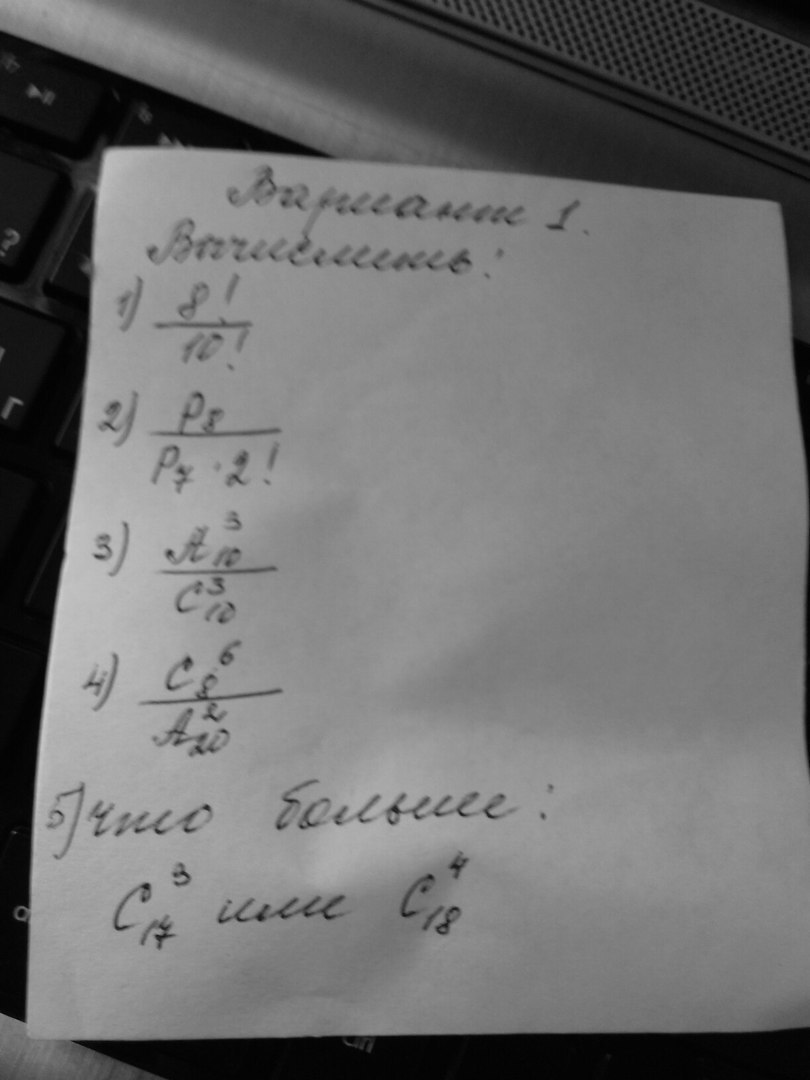 Вариант 1.
Вычислить:
1) 8! / 10!
2) P₈ / P₇ · 2!
3) A₁₀³ / C₁₀³
4) C₈⁶ / A₂₀²
5) что больше:
C₁₇³ или C₁₈⁴